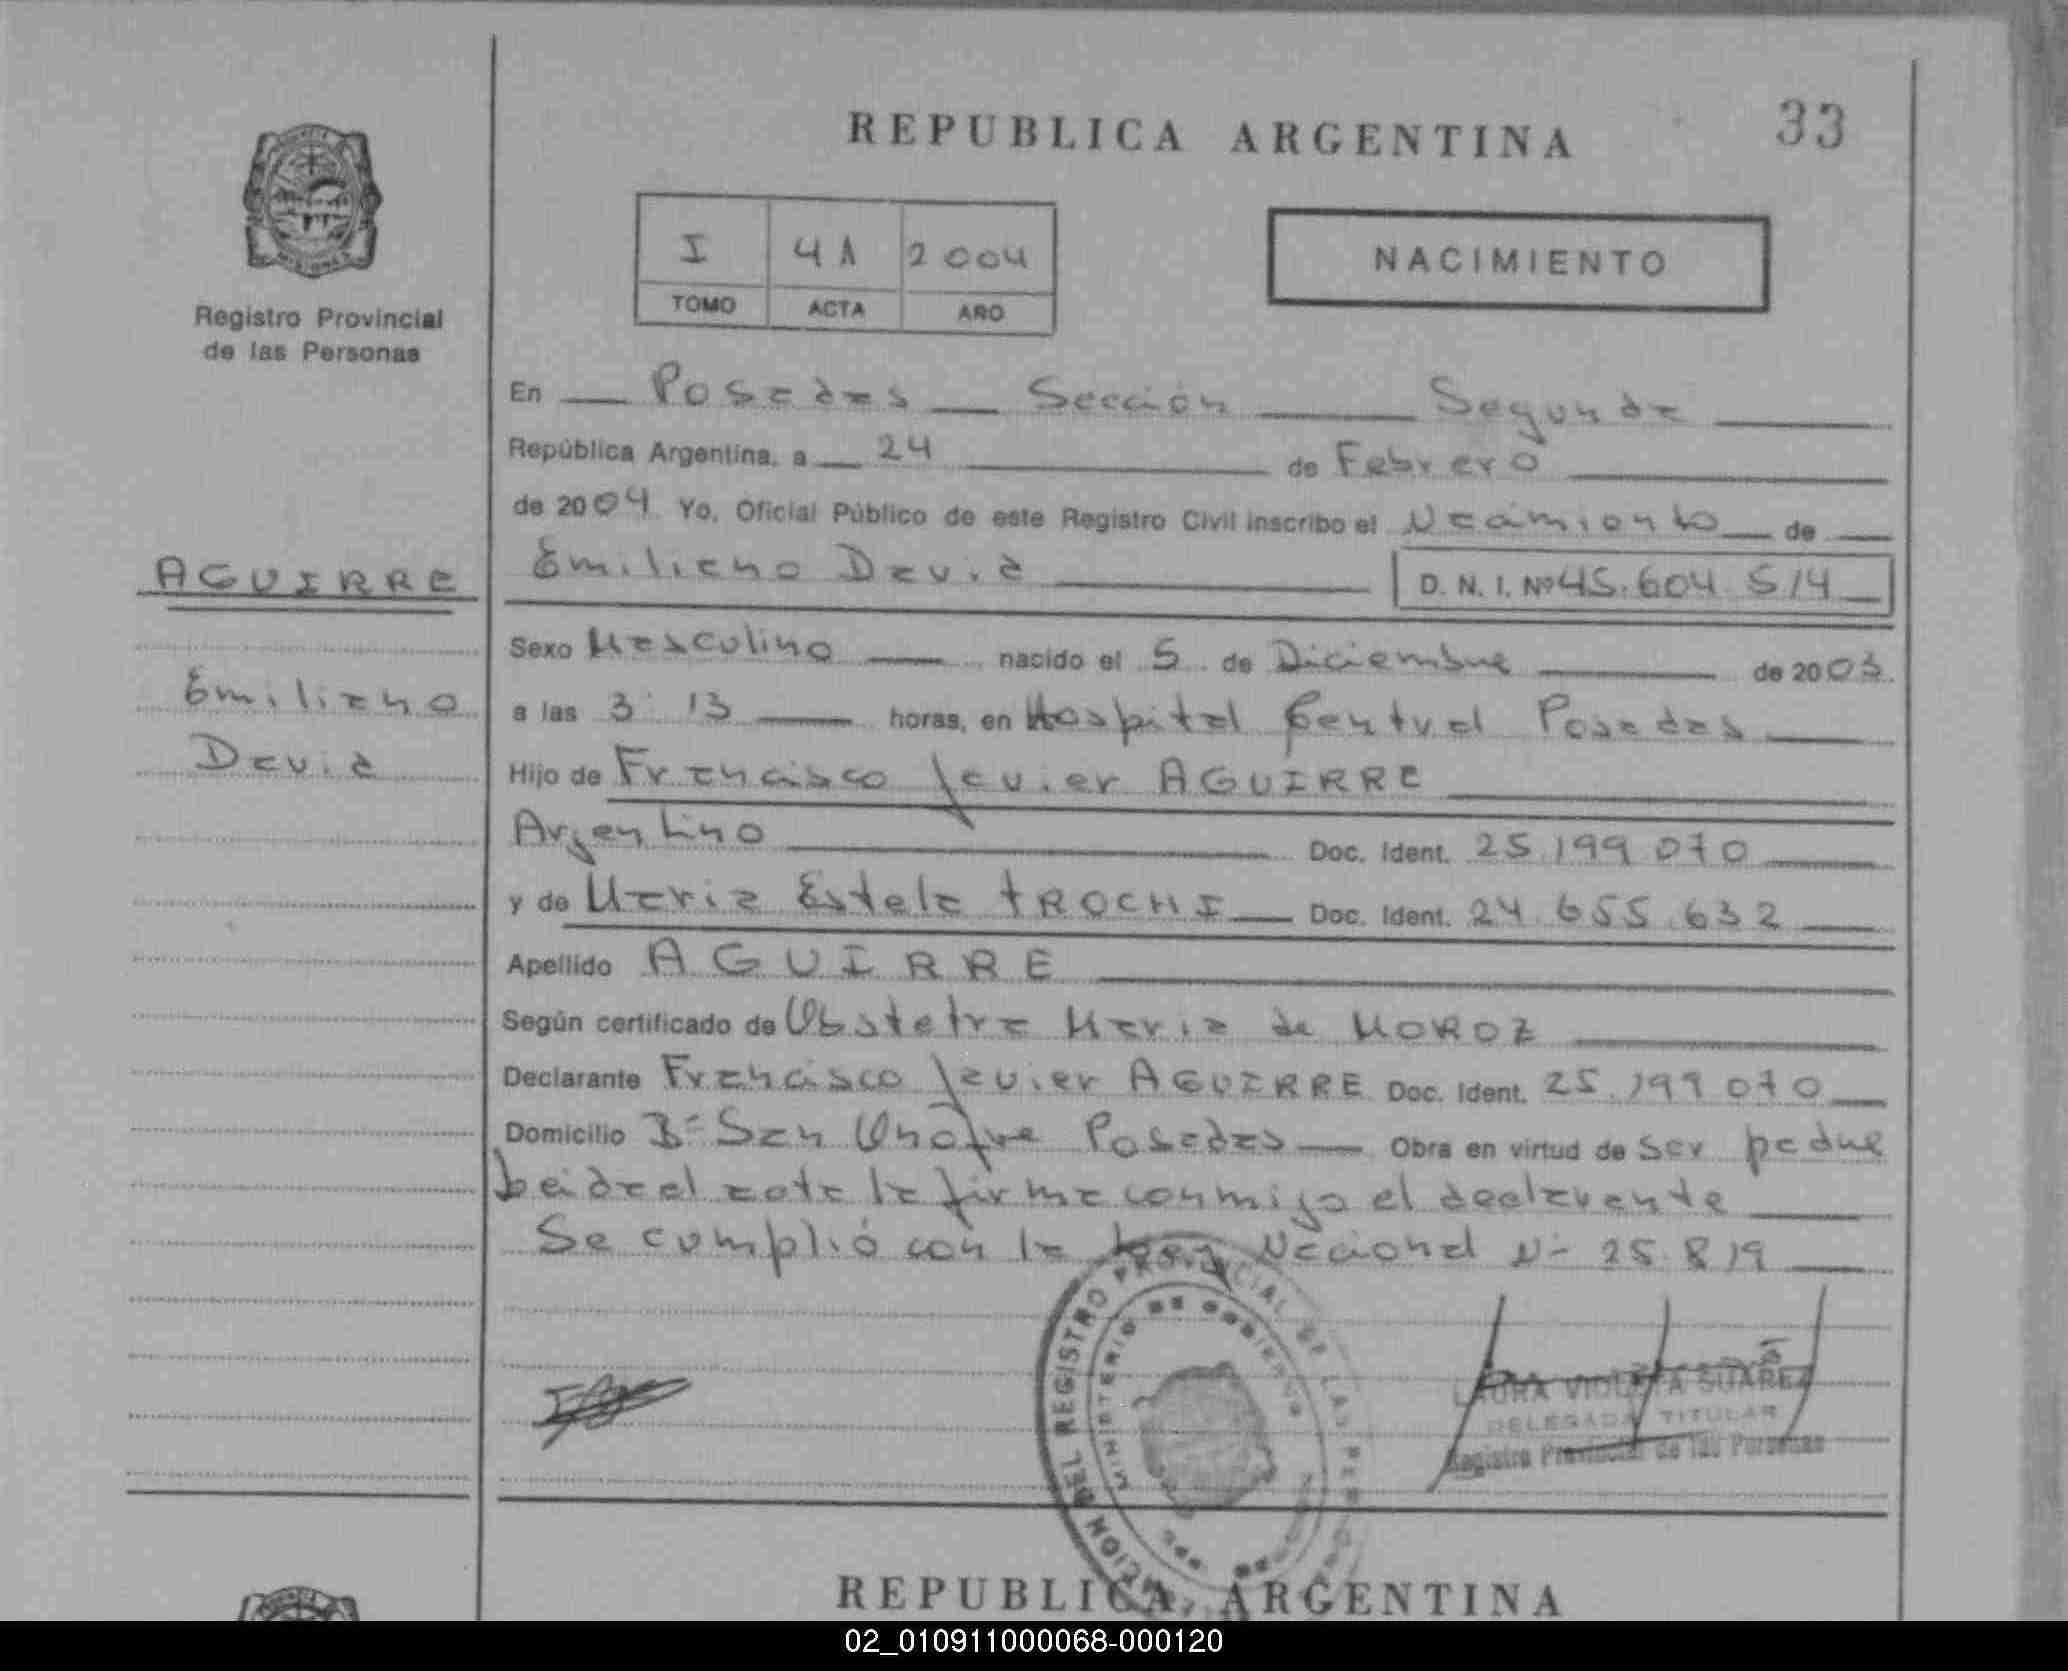 REPUBLICA ARGENTINA
33
I 4A 2004
TOMO ACTA AÑO
NACIMIENTO
Registro Provincial
de las Personas
En Posadas Sección Segunda
República Argentina, a 24 de Febrero
de 2004 Yo, Oficial Público de este Registro Civil inscribo el Nacimiento de
Emiliano David D. N. I. Nº 45.604.514
AGUIRRE
Emiliano
David
Sexo Masculino nacido el 5 de Diciembre de 2003
a las 3:13 horas, en Hospital Central Posadas
Hijo de Francisco Javier AGUIRRE
Argentino Doc. Ident. 25.199.070
y de Maria Estela TROCHI Doc. Ident. 24.655.632
Apellido AGUIRRE
Según certificado de Obstetra Maria de MOROZ
Declarante Francisco Javier AGUIRRE Doc. Ident. 25.199.070
Domicilio Bº San Onofre Posadas Obra en virtud de ser padre
la firma conmigo el declarante
Se cumplió con la Ley Nacional Nº 25.819
REGISTRO PROVINCIAL DE LAS
MINISTERIO DE GOBIERNO
LAURA VIOLETA SUAREZ
DELEGADA TITULAR
Registro Provincial de las Personas
REPUBLICA ARGENTINA
02_010911000068-000120